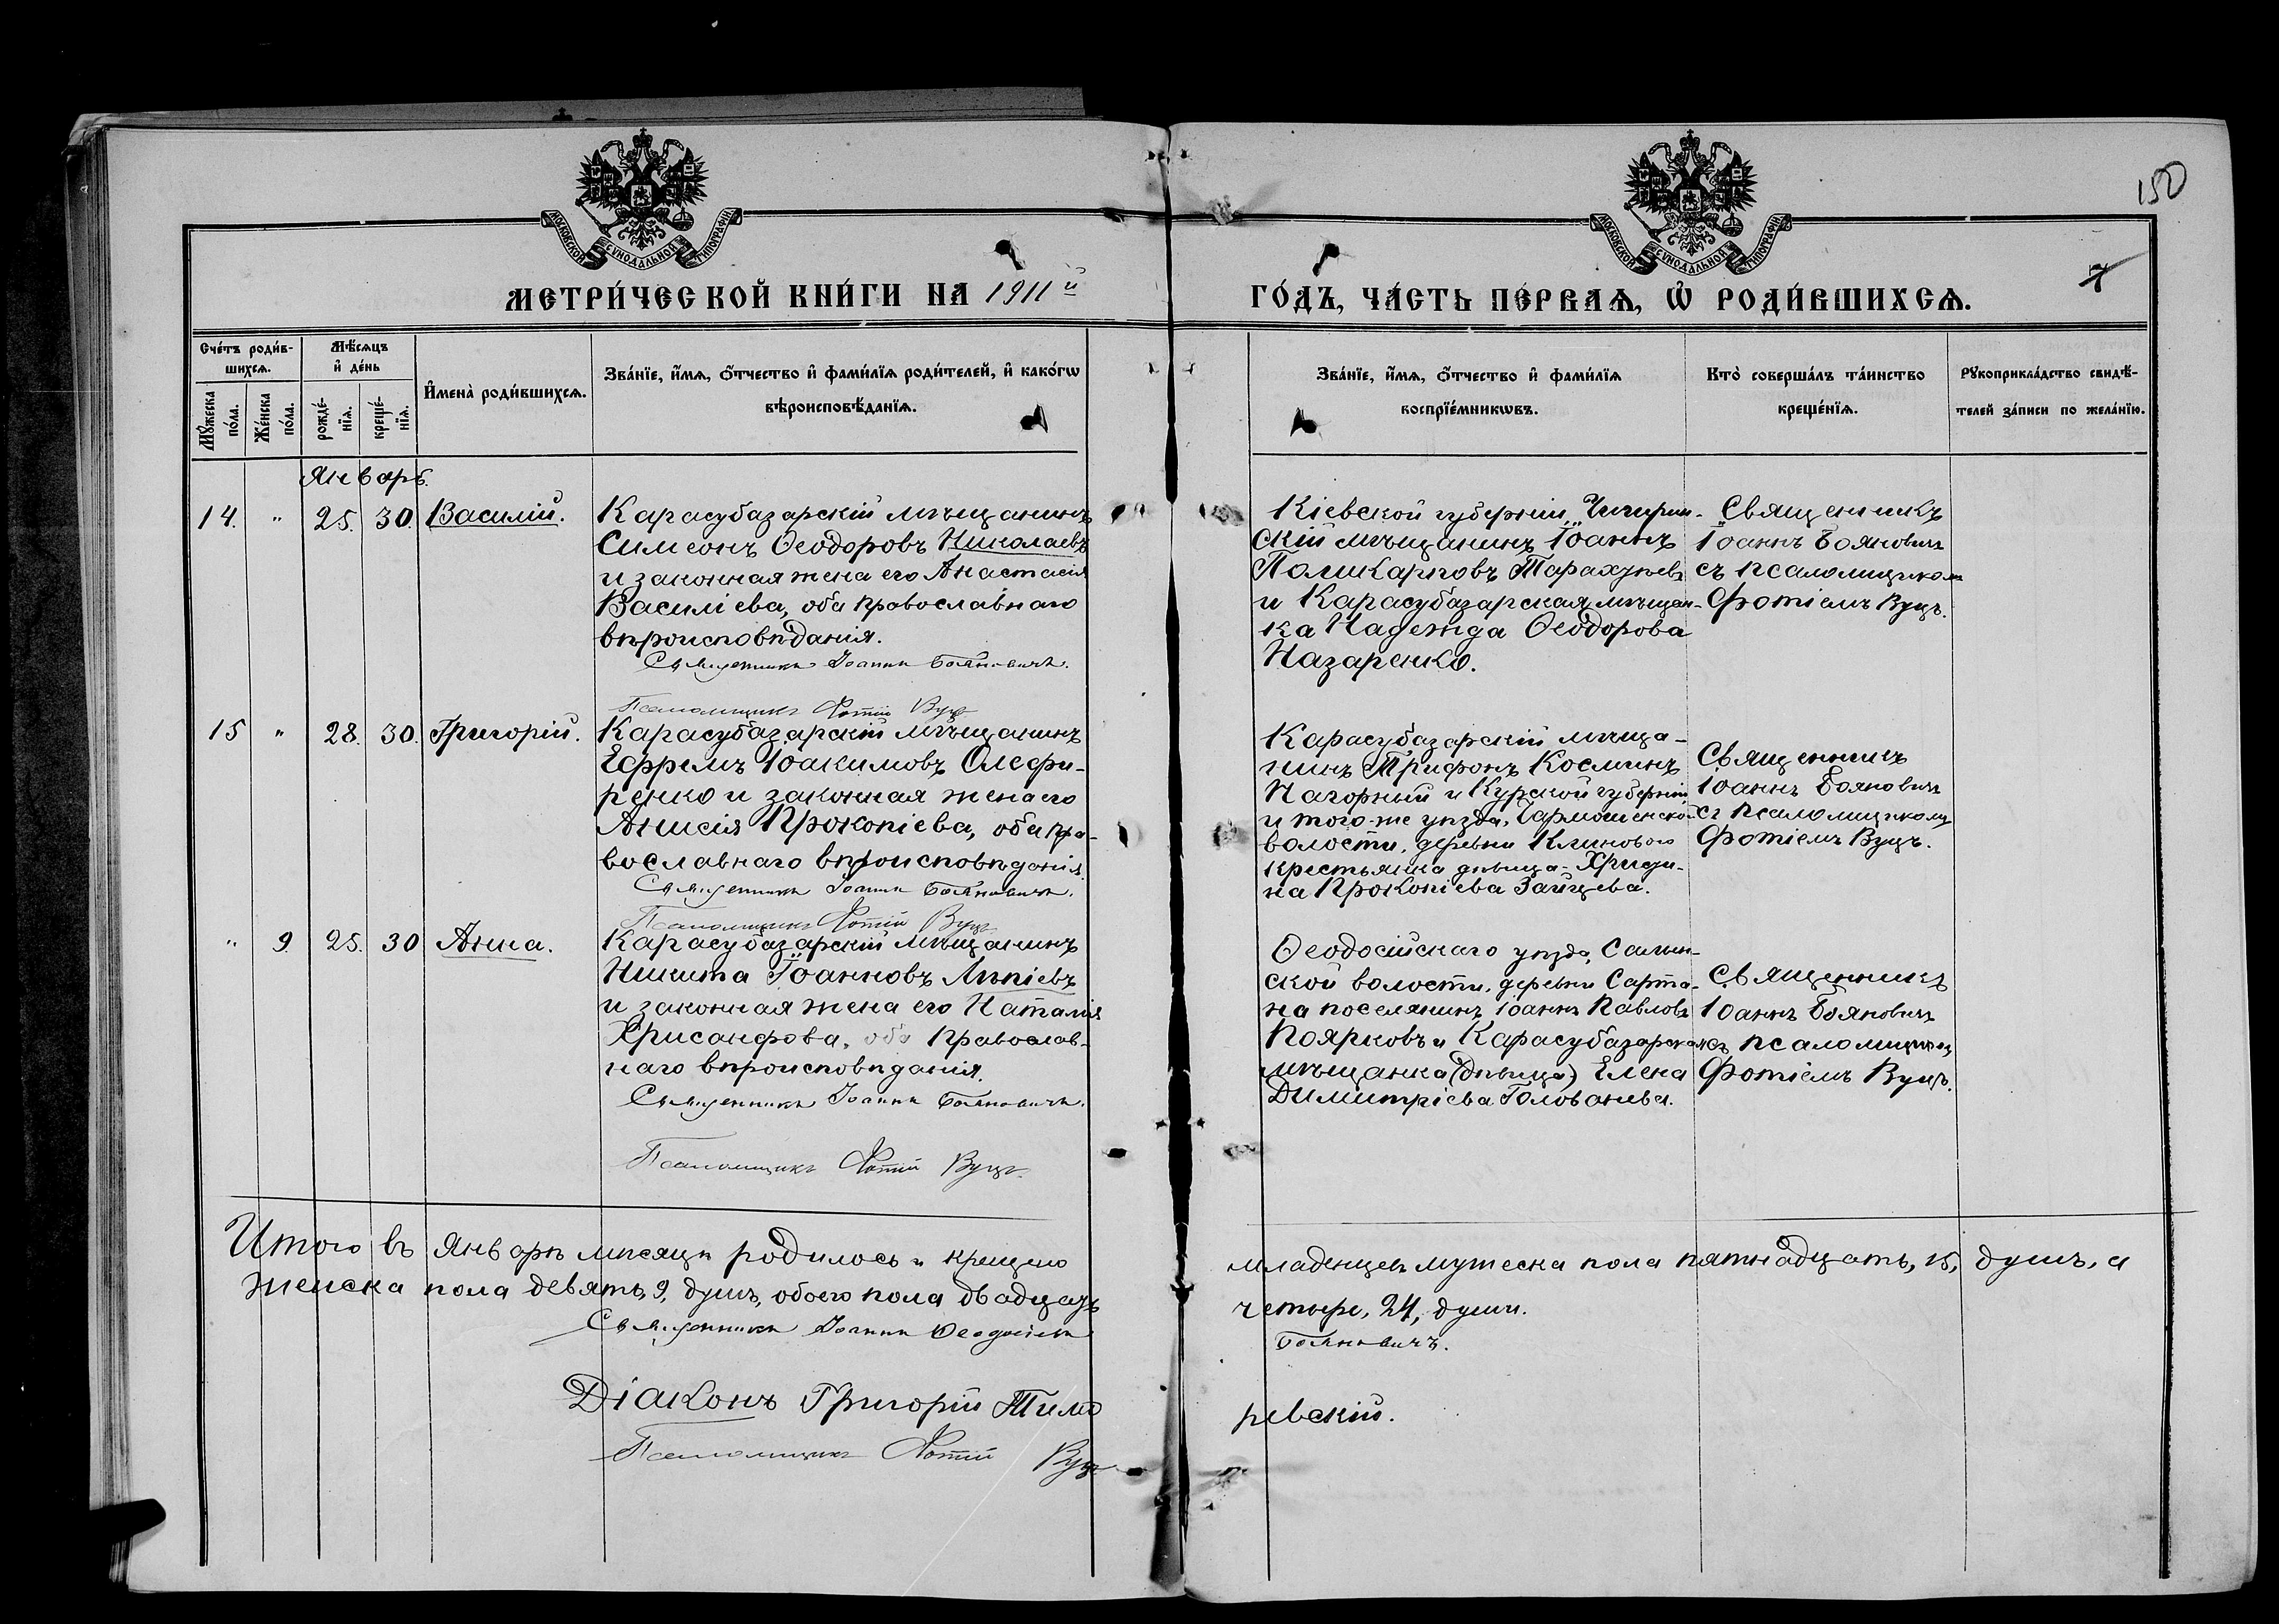 150
7
МОСКОВСКОЙ СѴНОДАЛЬНОЙ ТИПОГРАФІИ
МОСКОВСКОЙ СѴНОДАЛЬНОЙ ТИПОГРАФІИ
МЕТРИ́ЧЕСКОЙ КНИ́ГИ НА 1911й
ГО́ДЪ, ЧА́СТЬ ПЕ́РВАѦ, Ѡ҆ РОДИ́ВШИХСѦ.
Сче́тъ роди́в-
шихсѧ.
Мѣ́сѧцъ
и҆ де́нь
Мꙋ́жеска
по́ла.
Же́нска
по́ла.
рожде́-
нїѧ.
креще́-
нїѧ.
И҆мена̀ роди́вшихсѧ.
Зва́нїе, и҆́мѧ, ѻ҆́тчество и҆ фами́лїѧ роди́телей, и҆ како́гѡ
вѣроисповѣ́данїѧ.
Зва́нїе, и҆́мѧ, ѻ҆́тчество и҆ фами́лїѧ
воспрїе́мникѡвъ.
Кто̀ соверша́лъ та́инство
креще́нїѧ.
Рꙋкоприкла́дство свидѣ́-
телей за́писи по жела́нїю.
Январь.
14. " 25. 30. Василій.
Карасубазарскій мѣщанинъ
Симеонъ Ѳеодоровъ Николаевъ
и законная жена его Анастасія
Василіева, оба православнаго
вѣроисповѣданія.
Священникъ Іоаннъ Бояновичъ.
Псаломщикъ Фотій Вуцъ
Кіевской губерніи, Чигирин-
скій мѣщанинъ Іоаннъ
Поликарповъ
и Карасубазарская мѣщан-
ка Надежда Ѳеодорова
Назаренко.
Священникъ
Іоаннъ Бояновичъ
съ псаломщикомъ
Фотіемъ Вуцъ.
15 " 28. 30. Григорій.
Карасубазарскій мѣщанинъ
Ефремъ Іоакимовъ Олефи-
ренко и законная жена его
Анисія Прокопіева, оба пра-
вославнаго вѣроисповѣданія.
Священникъ Іоаннъ Бояновичъ.
Псаломщикъ Фотій Вуцъ
Карасубазарскій мѣща-
нинъ Трифонъ Косминъ
Нагорный и Курской губерніи
и того-же уѣзда,
волости, деревни Клиновою
крестьянка дѣвица - Христи-
на Прокопіева Зайцева.
Священникъ
Іоаннъ Бояновичъ
съ псаломщикомъ
Фотіемъ Вуцъ.
" 9. 25. 30 Анна.
Карасубазарскій мѣщанинъ
Никита Іоанновъ
и законная жена его Наталія
Хрисанфова, оба православ-
наго вѣроисповѣданія.
Священникъ Іоаннъ Бояновичъ.
Псаломщикъ Фотій Вуцъ.
Ѳеодосійскаго уѣзда,
ской волости, деревни Сарта-
на поселянинъ Іоаннъ Павловъ
Поярковъ и Карасубазарская
мѣщанка (дѣвица) Елена
Димитріева Голованева.
Священникъ
Іоаннъ Бояновичъ
съ псаломщикомъ
Фотіемъ Вуцъ.
Итого въ Январѣ мѣсяцѣ родилось и крещено младенцевъ мужеска пола пятнадцать, 15, душъ, а
женска пола девять, 9, душъ, обоего пола двадцать четыре, 24, души.
Священникъ Іоаннъ Ѳеодосіевъ Бояновичъ.
Діаконъ Григорій Тимо ревскій.
Псаломщикъ Фотій Вуцъ